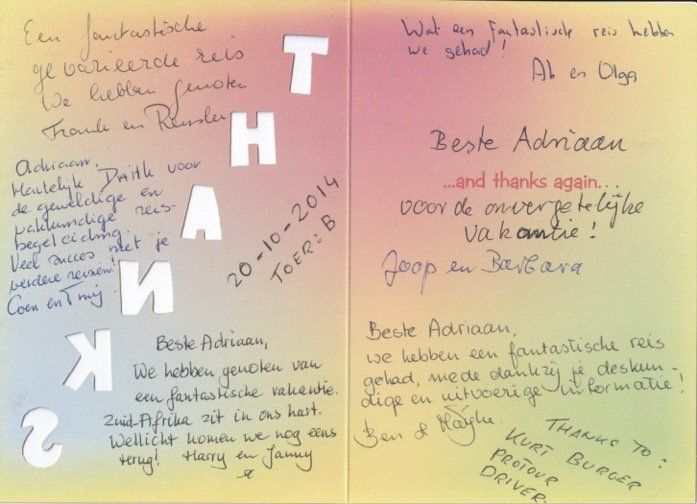 Een fantastische
gevarieerde reis
We hebben genoten
Frouk en Reusler
Adriaan,
Hartelijk Dank voor
de geweldige en
vakkundige reis-
begeleiding.
Veel succes met je
verdere reizen!
Coen en Tmij.
THANKS
20-10-2014
TOER: B
Beste Adriaan,
We hebben genoten van
een fantastische vakantie.
Zuid-Afrika zit in ons hart.
Wellicht komen we nog eens
terug! Harry en Janny
Wat een fantastische reis hebben
we gehad!
Ab en Olga
Beste Adriaan
...and thanks again...
voor de onvergetelijke
vakantie!
Joop en Barbara
Beste Adriaan,
we hebben een fantastische reis
gehad, mede dankzij je deskun-
dige en uitvoerige informatie!
Ben & 
THANKS TO:
KURT BURGER
PROTOUR
DRIVER.